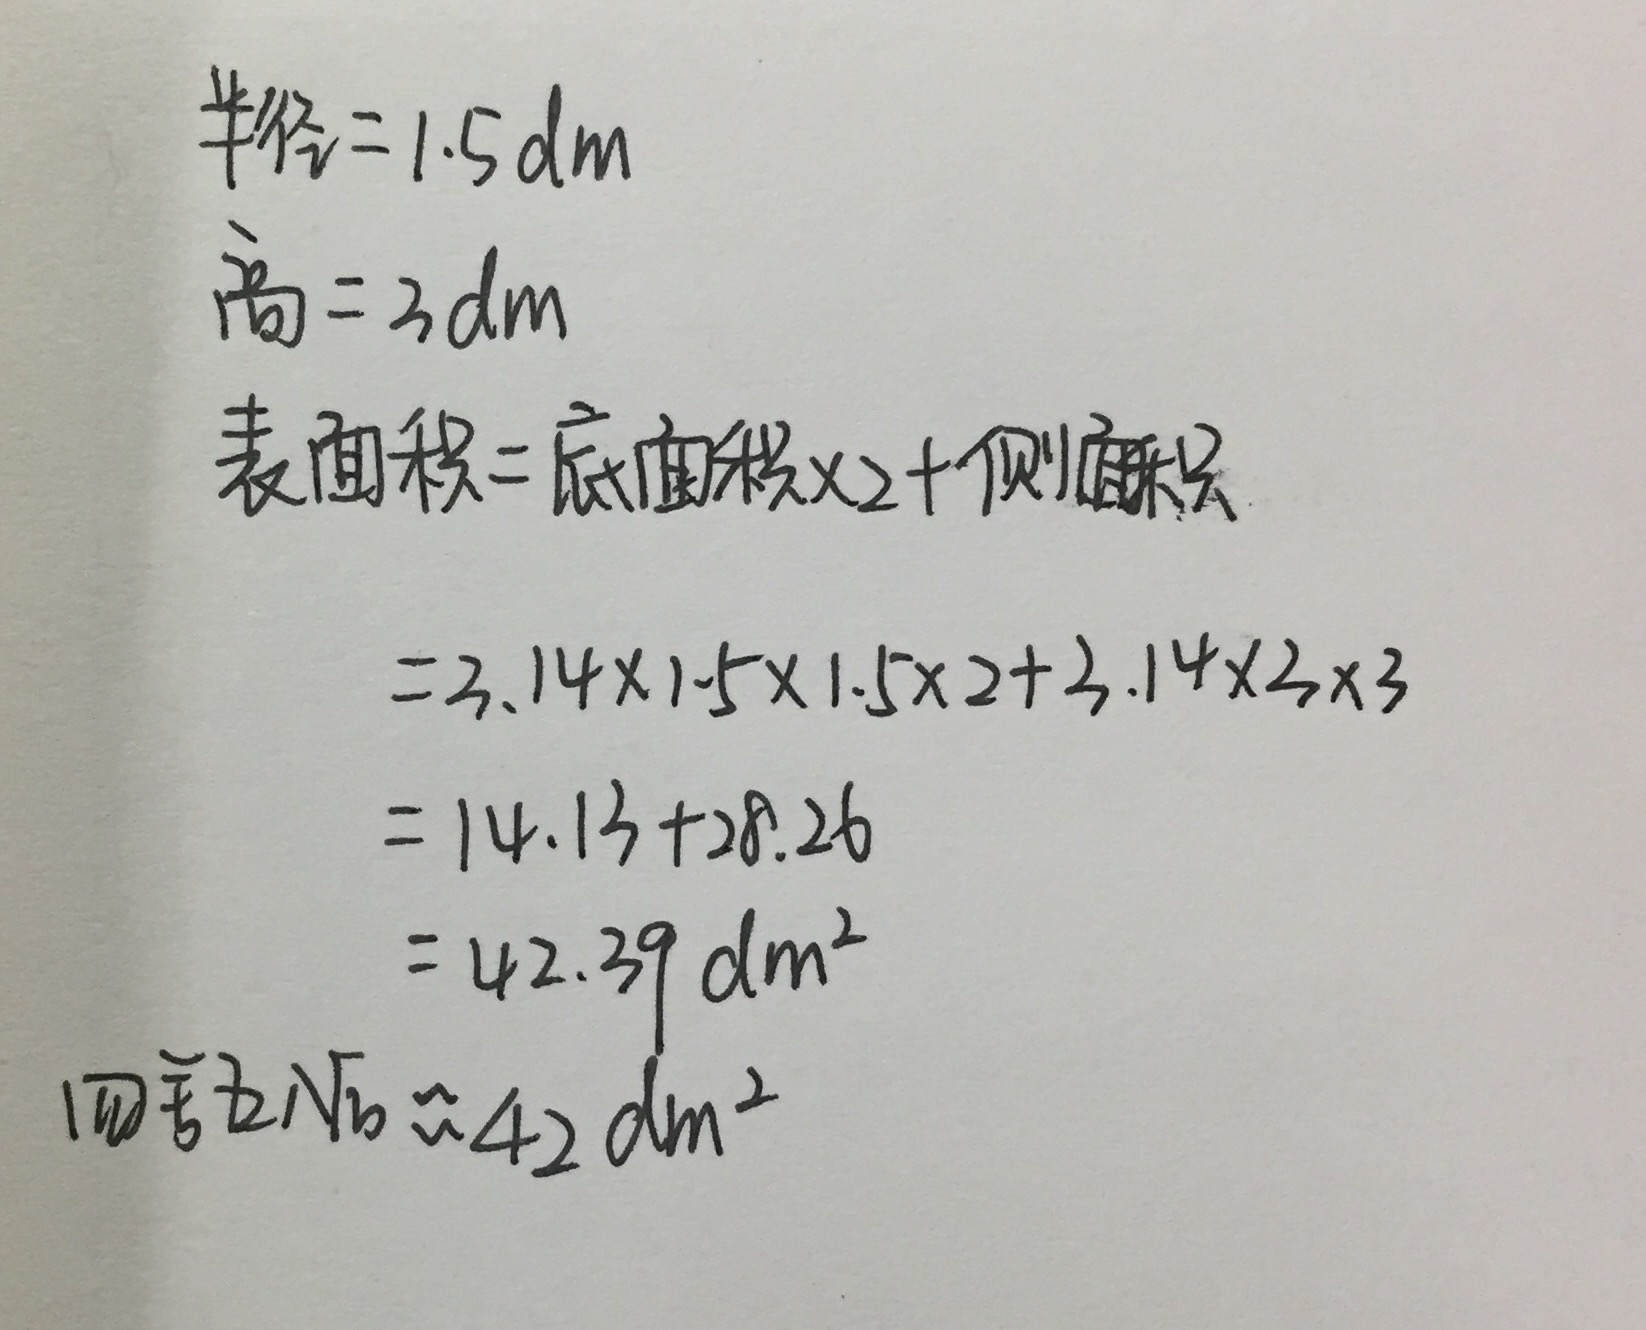 半径=1.5dm
高=3dm
表面积=底面积×2+侧面积
=3.14×1.5×1.5×2+3.14×3×3
=14.13+28.26
=42.39dm²
四舍五入≈42dm²